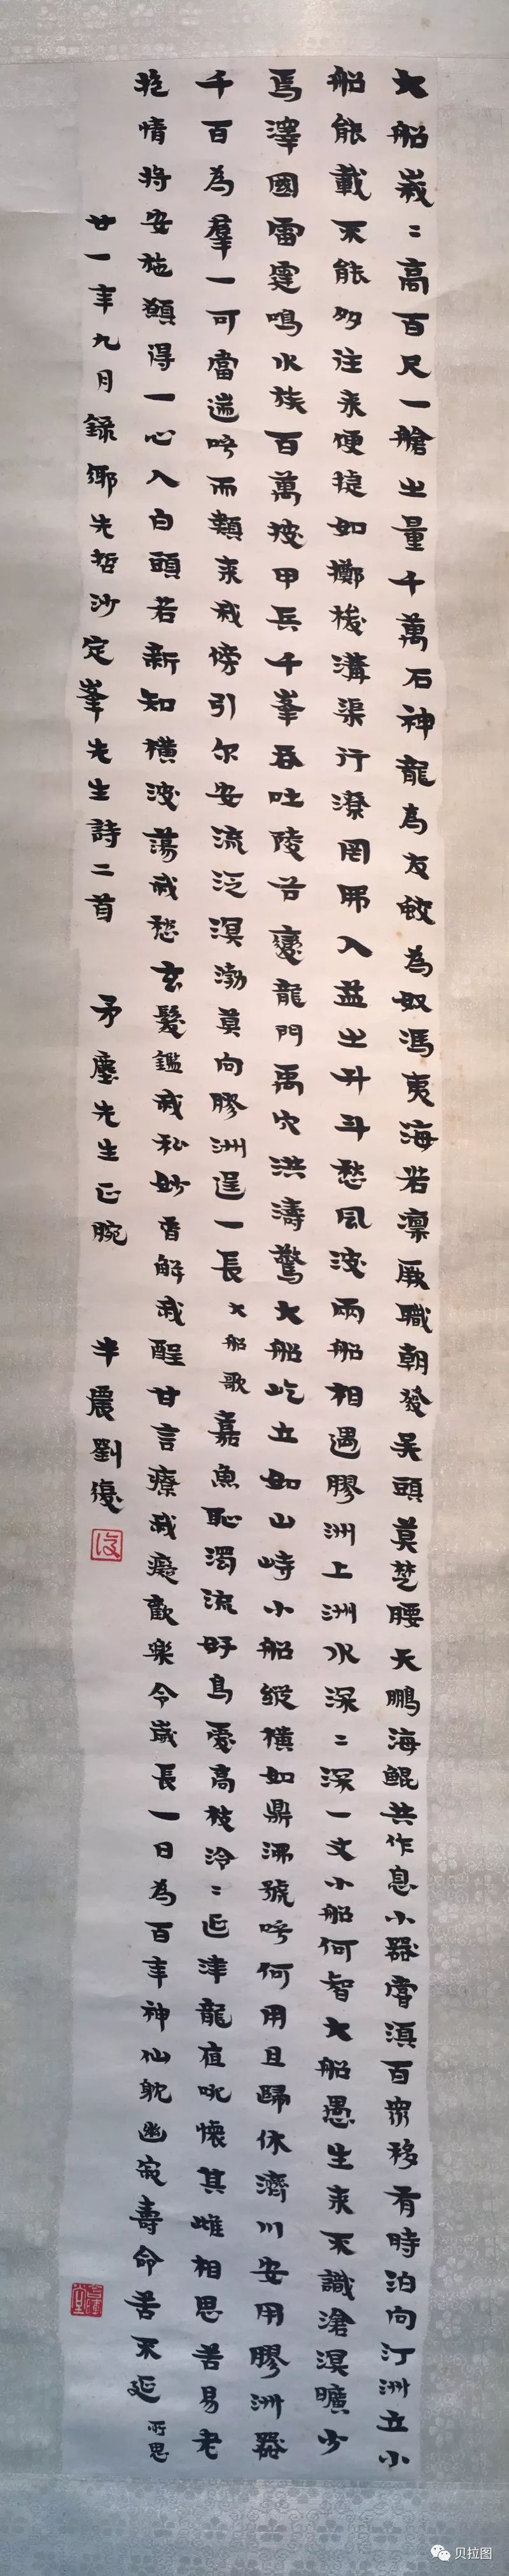 大船峩〻高百尺一艙之量千萬石神龍為友蛟為奴馮夷海若凛厥職朝發吴頭莫楚腰天鵬海鯤共作息小器胷滇百粥移有時泊向汀洲立小
船能載不能多往来便捷如擲梭溝渠行潦罔弗入益之升斗愁風波兩船相遇膠洲上洲水深〻深一丈小船何智大船愚生来不識滄溟曠少
焉澤國雷霆鳴水族百萬披甲兵千峯吞吐陵谷變龍門禹穴洪濤驚大船屹立如山峙小船縱横如鼎沸號呼何用且歸休濟川安用膠洲器
千百為羣一可當遄呼而類来我傍引尔安流泛溟渤莫向膠洲逞一長大船歌嘉魚恥濁流好鳥憂高枝泠〻延津龍夜吼懷其雌相思苦易老
抱情将安施願得一心人白頭若新知横波蕩我愁玄髮鑑我私妙香解我酲甘言療我癡歡樂令歲長一日為百年神仙躭幽寂壽命苦不延所思
廿一年九月錄鄉先哲沙定峯先生詩二首 矛塵先生正腕 半農劉復
貝拉图